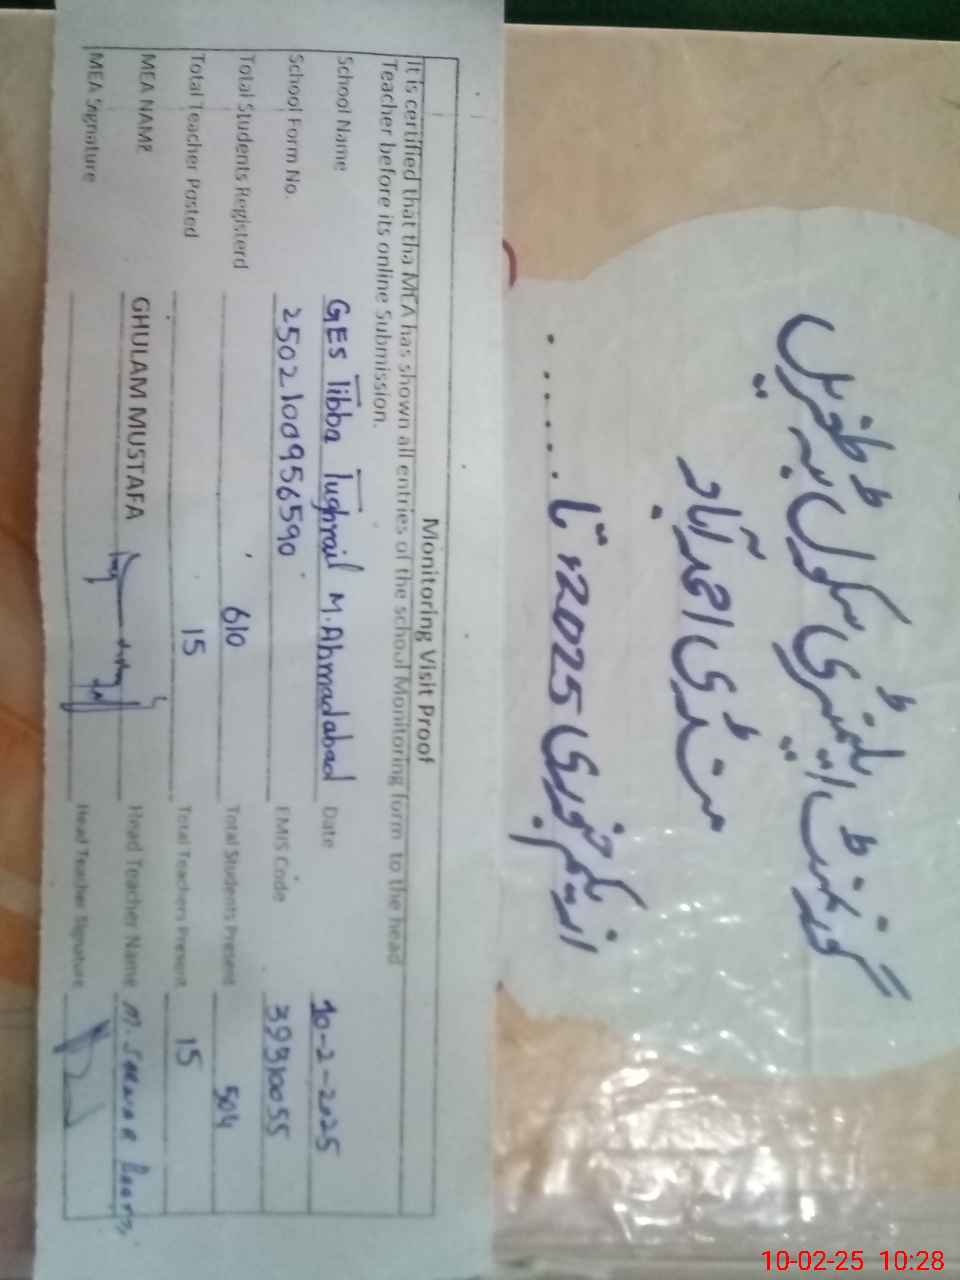 گورنمنٹ ایلیمنٹری سکول ٹبہ طغریل
منڈی احمد آباد
از یکم جنوری 2025ء تا . . . . . .
Monitoring Visit Proof
It is certified that tha MEA has shown all entries of the school Monitoring form to the head
Teacher before its online Submission.
School Name GES Tibba Tughrail M.Ahmadabad Date 10-2-2025
School Form No. 2502100956590 EMIS Code 39310055
Total Students Registerd 610 Total Students Present 504
Total Teacher Posted 15 Total Teachers Present 15
MEA NAME GHULAM MUSTAFA Head Teacher Name M.
MEA Signature Head Teacher Signature
10-02-25 10:28